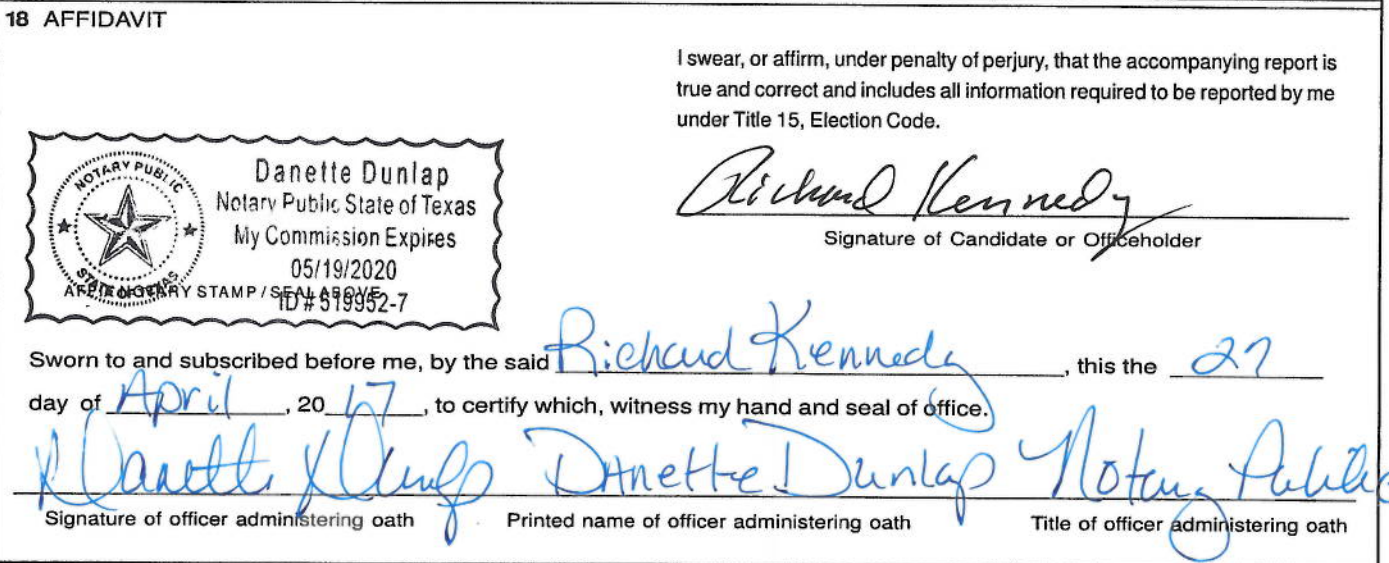 18 AFFIDAVIT
I swear, or affirm, under penalty of perjury, that the accompanying report is
true and correct and includes all information required to be reported by me
under Title 15, Election Code.
Richard Kennedy
Signature of Candidate or Officeholder
NOTARY PUBLIC
STATE OF TEXAS
Danette Dunlap
Notary Public State of Texas
My Commission Expires
05/19/2020
ID# 519952-7
AFFIX NOTARY STAMP / SEAL ABOVE
Sworn to and subscribed before me, by the said Richard Kennedy, this the 27
day of April, 20 17, to certify which, witness my hand and seal of office.
Danette Dunlap Danette Dunlap Notary Public
Signature of officer administering oath Printed name of officer administering oath Title of officer administering oath